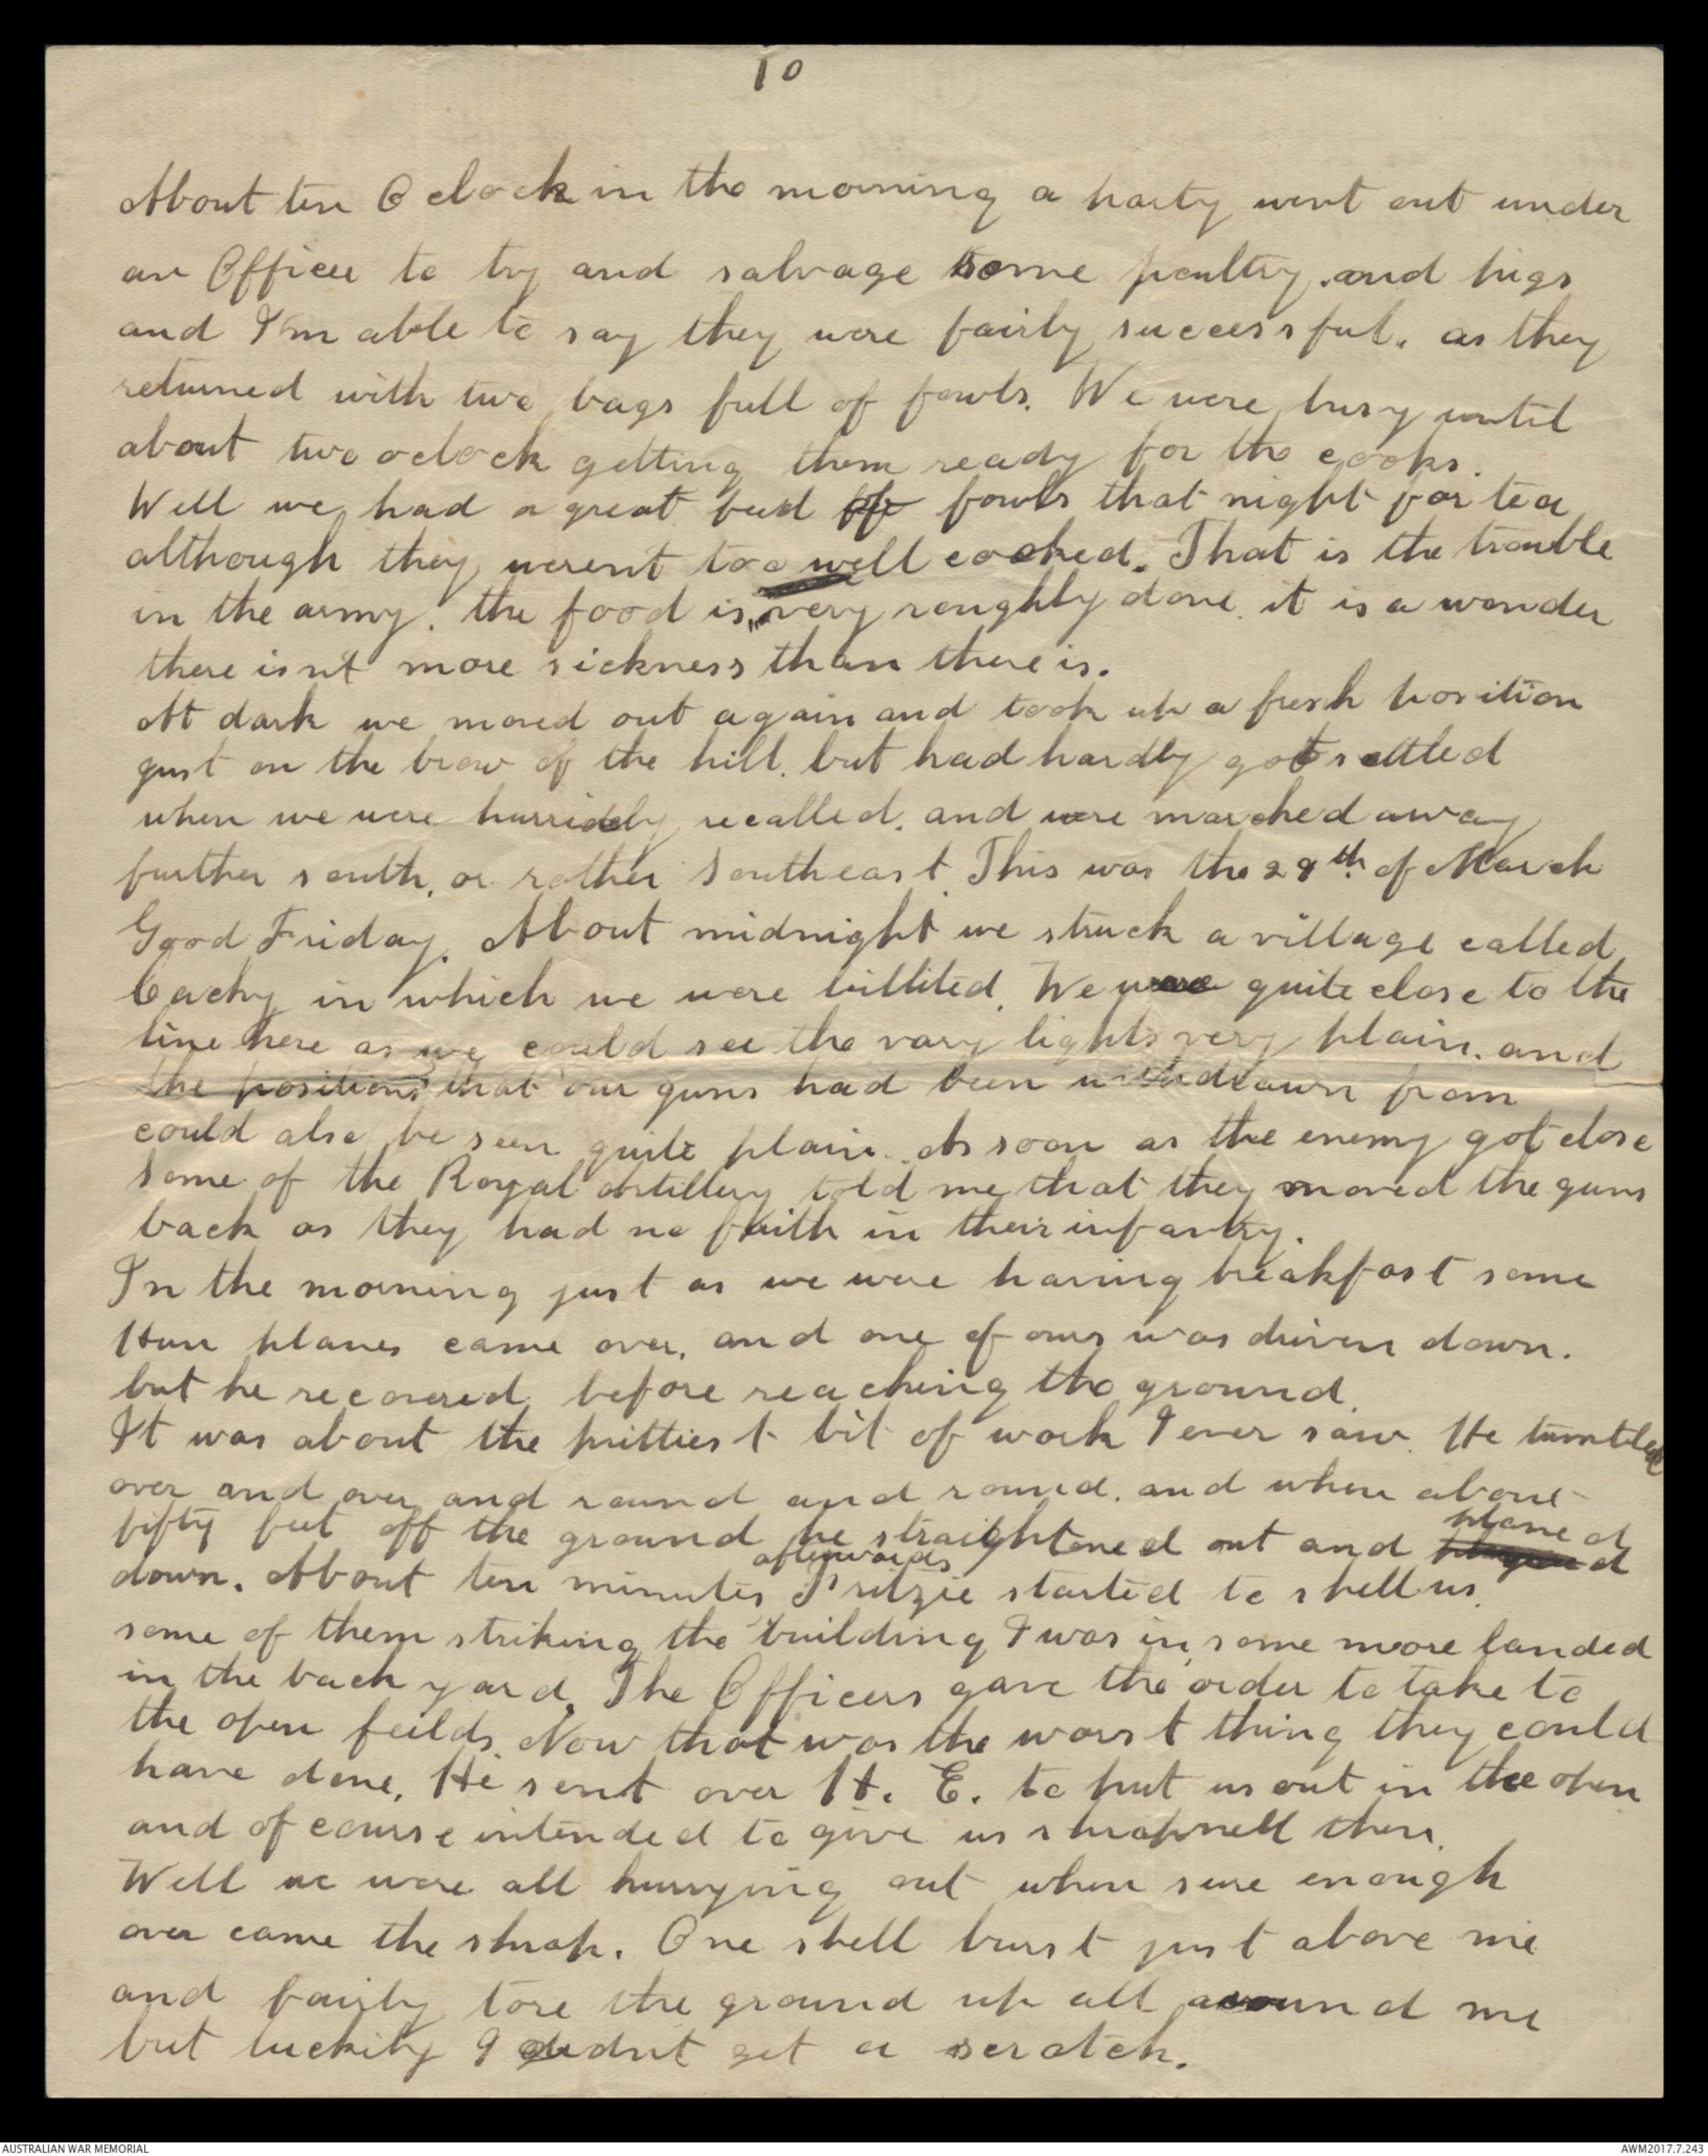 10
About ten O clock in the morning a party went out under
an Officer to try and salvage some poultry. and pigs
and I'm able to say they were fairly successful. as they
returned with two bags full of fowls. We were busy until
about two oclock getting them ready for the cooks.
Well we had a great feed of fowls that night for tea
although they weren't too well cooked. That is the trouble
in the army. the food is very roughly done. it is a wonder
there isn't more sickness than there is.
At dark we moved out again and took up a fresh position
just on the brow of the hill. but had hardly got settled
when we were hurriedly recalled. and were marched away
further south. or rather Southeast. This was the 28th of March
Good Friday. About midnight we struck a village called
Cachy in which we were billited. We were quite close to the
line here as we could see the vary lights very plain. and
the positions that our guns had been withdrawn from
could also be seen quite plain. As soon as the enemy got close
some of the Royal Artillery told me that they moved the guns
back as they had no faith in their infantry.
In the morning just as we were having breakfast some
Hun planes came over. and one of ours was driven down.
but he recovered before reaching the ground.
It was about the prittiest bit of work I ever saw. He tumbled
over and over and round and round. and when about
fifty feet off the ground he straightened out and planed
down. About ten minutes afterwards Fritzie started to shell us.
some of them striking the building I was in, some more landed
in the back yard. The Officers gave the order to take to
the open feilds. Now that was the worst thing they could
have done. He sent over H. E. to put us out in the open
and of course intended to give us shrapnell then.
Well we were all hurrying out when sure enough
over came the shrap. One shell burst just above me
and fairly tore the ground up all around me
but luckily I didn't get a scratch.
AUSTRALIAN WAR MEMORIAL
AWM2017.7.243